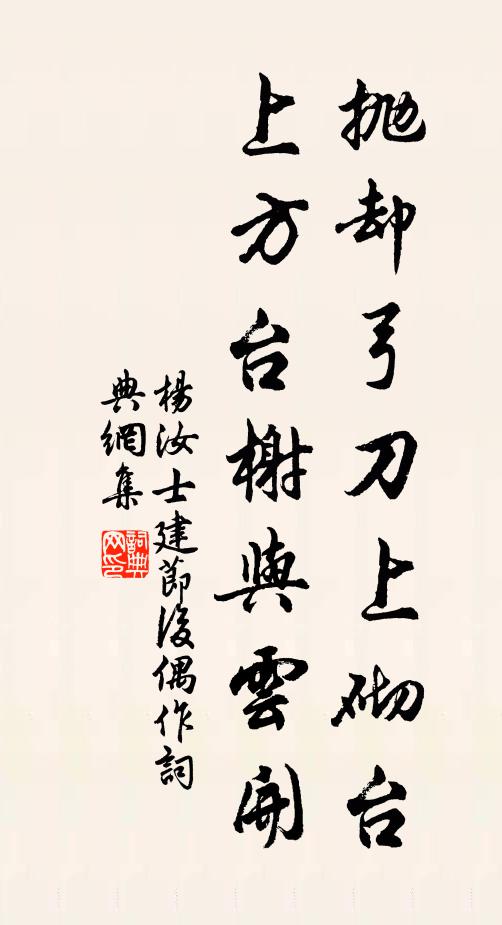 抛却弓刀上砌台
上方台榭與雲開
楊汝士建節後偶作詞
典網集
詞典网印